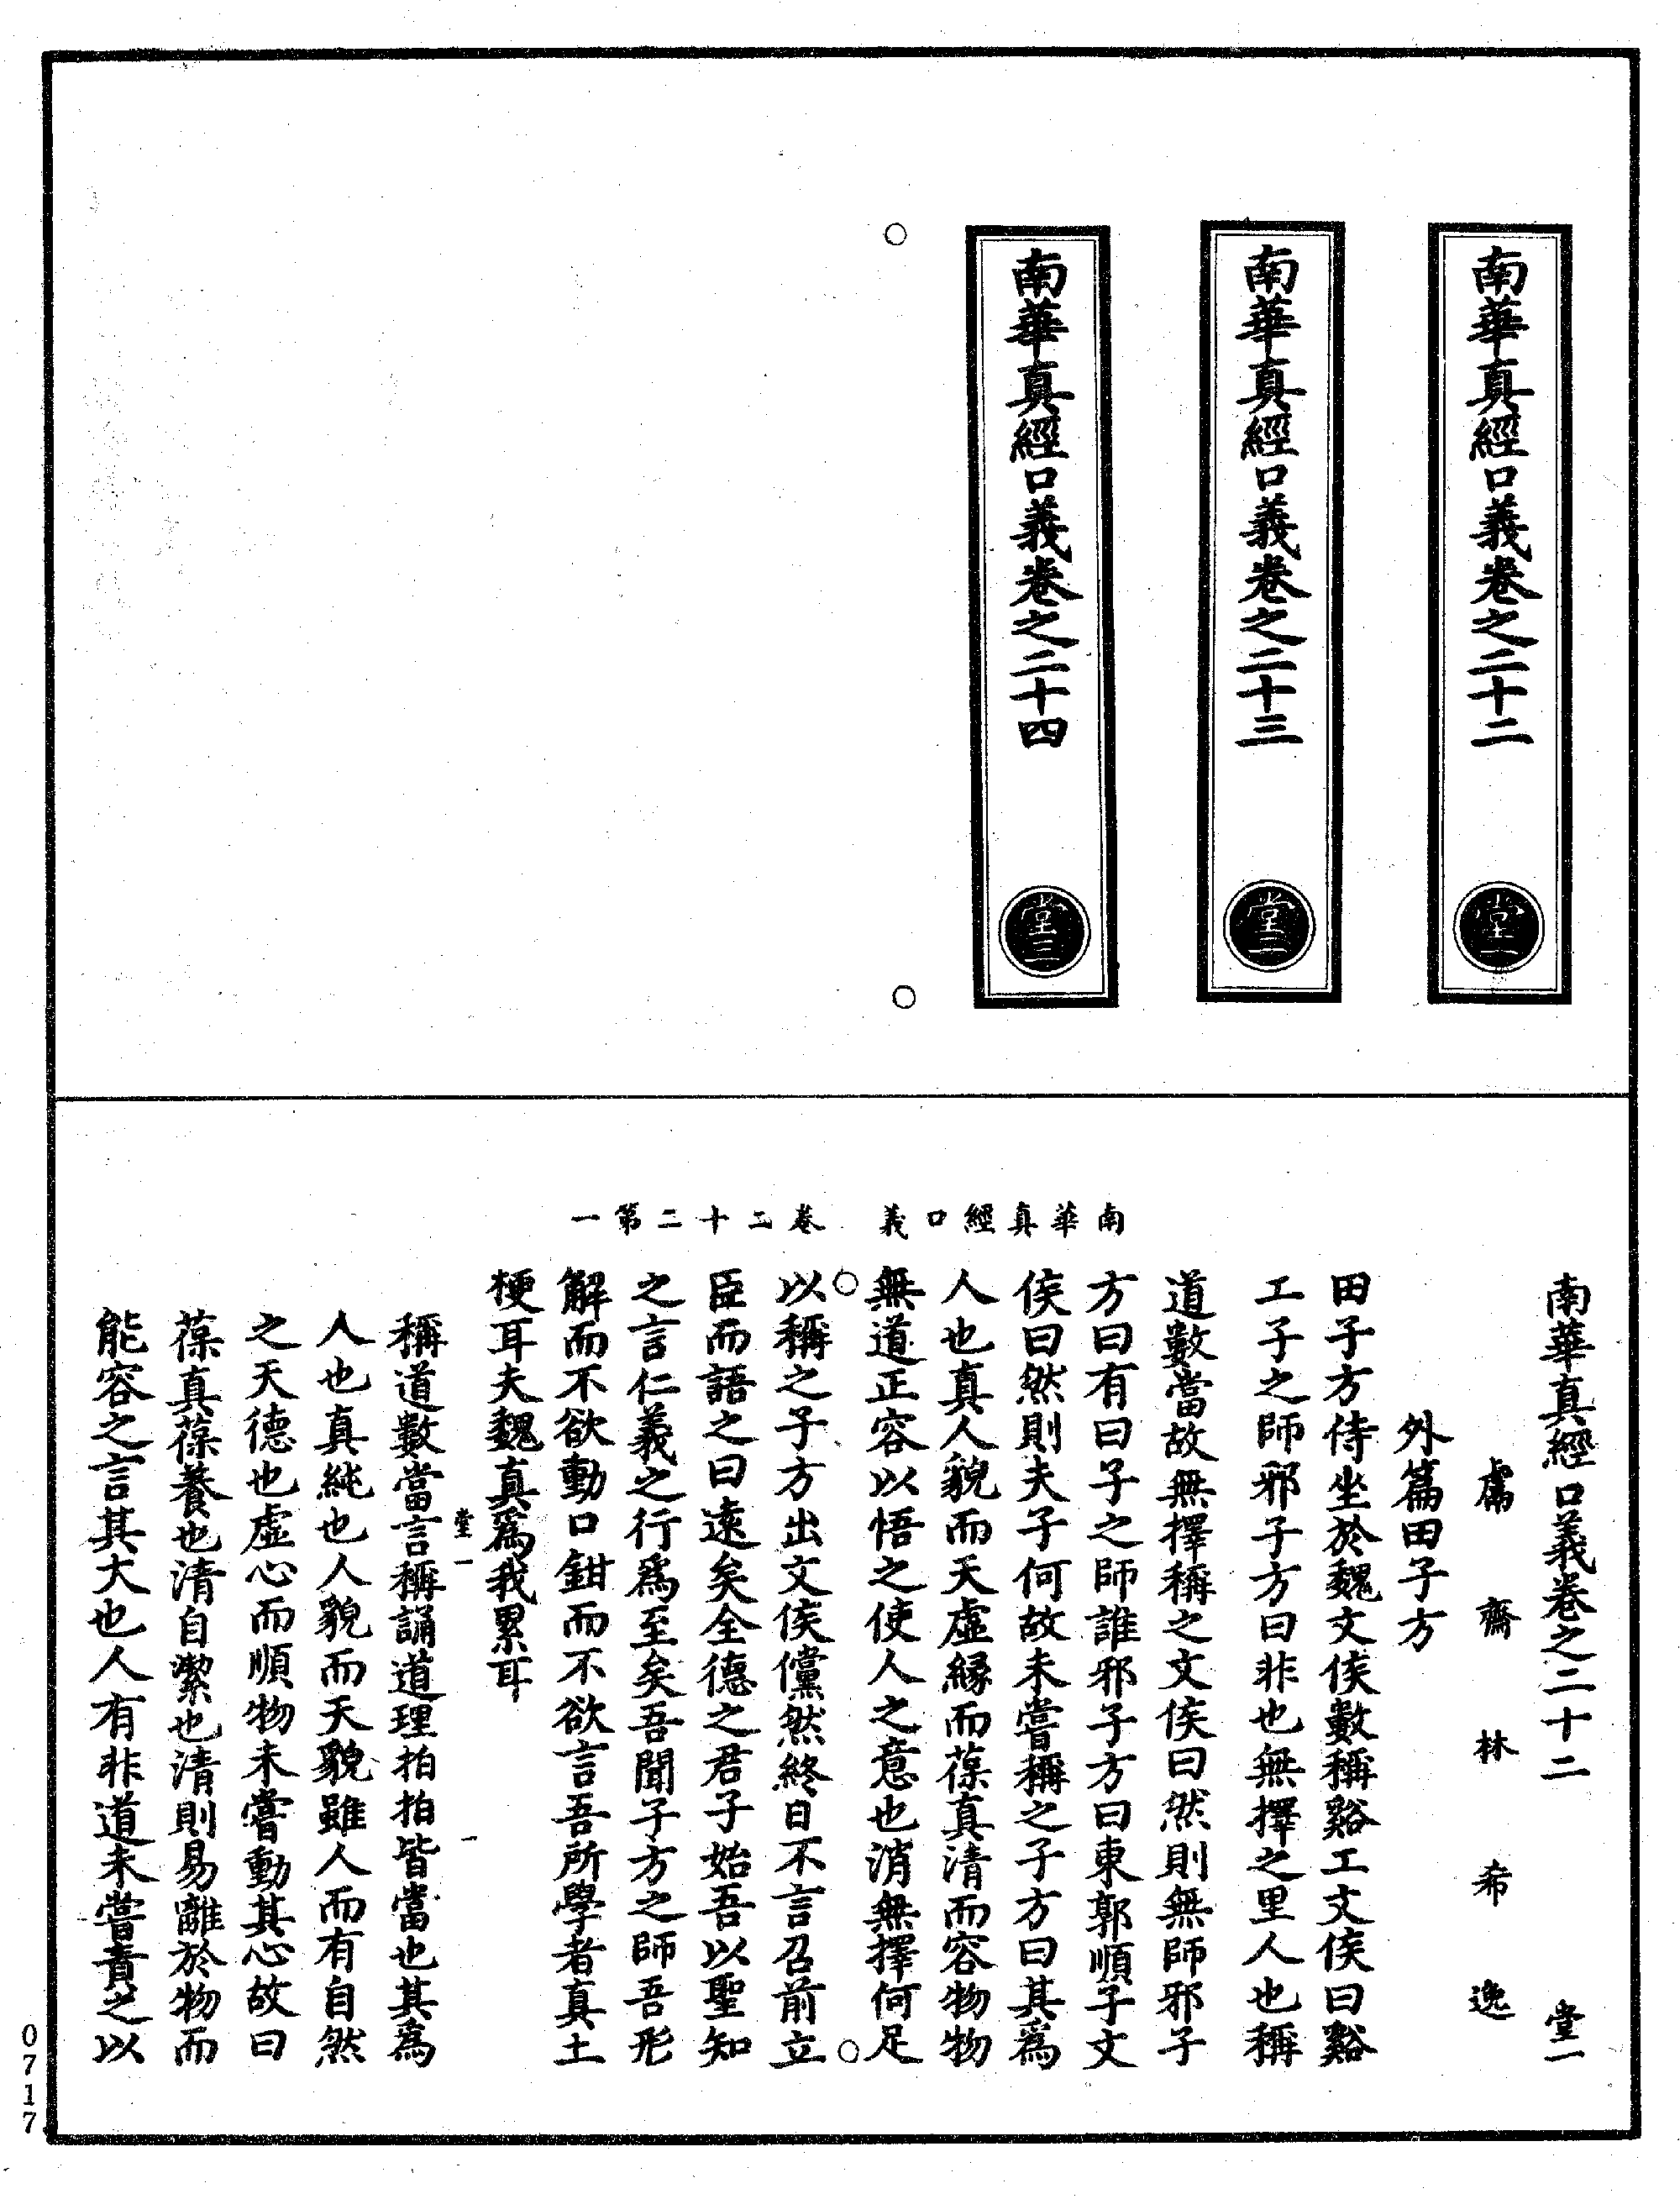 南華真經口義卷之二十二
堂一
南華真經口義卷之二十三
堂二
南華真經口義卷之二十四
堂三
南華真經口義 卷二十二第一
南華真經口義卷之二十二 堂一
鬳齋林希逸
外篇田子方
田子方侍坐於魏文侯數稱谿工文侯曰谿
工子之師邪子方曰非也無擇之里人也稱
道數當故無擇稱之文侯曰然則無師邪子
方曰有曰子之師誰邪子方曰東郭順子文
侯曰然則夫子何故未嘗稱之子方曰其爲
人也真人貌而天虛緣而葆真清而容物物
無道正容以悟之使人之意也消無擇何足
以稱之子方出文侯儻然終日不言召前立
臣而語之曰遠矣全德之君子始吾以聖知
之言仁義之行爲至矣吾聞子方之師吾形
解而不欲動口鉗而不欲言吾所學者真土
梗耳夫魏真爲我累耳
堂一
稱道數當言稱誦道理拍拍皆當也其爲
人也真純也人貌而天貌雖人而有自然
之天德也虛心而順物未嘗動其心故曰
葆真葆養也清自潔也清則易離於物而
能容之言其大也人有非道未嘗責之以
0717